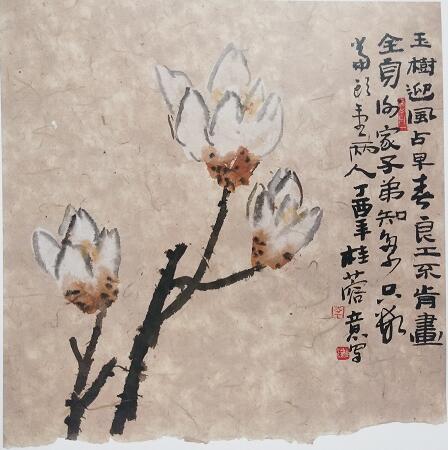 玉樹迎風占早春良工不肯畫
全身谢家子弟知多少只數
當頭兩人丁酉年桂意写